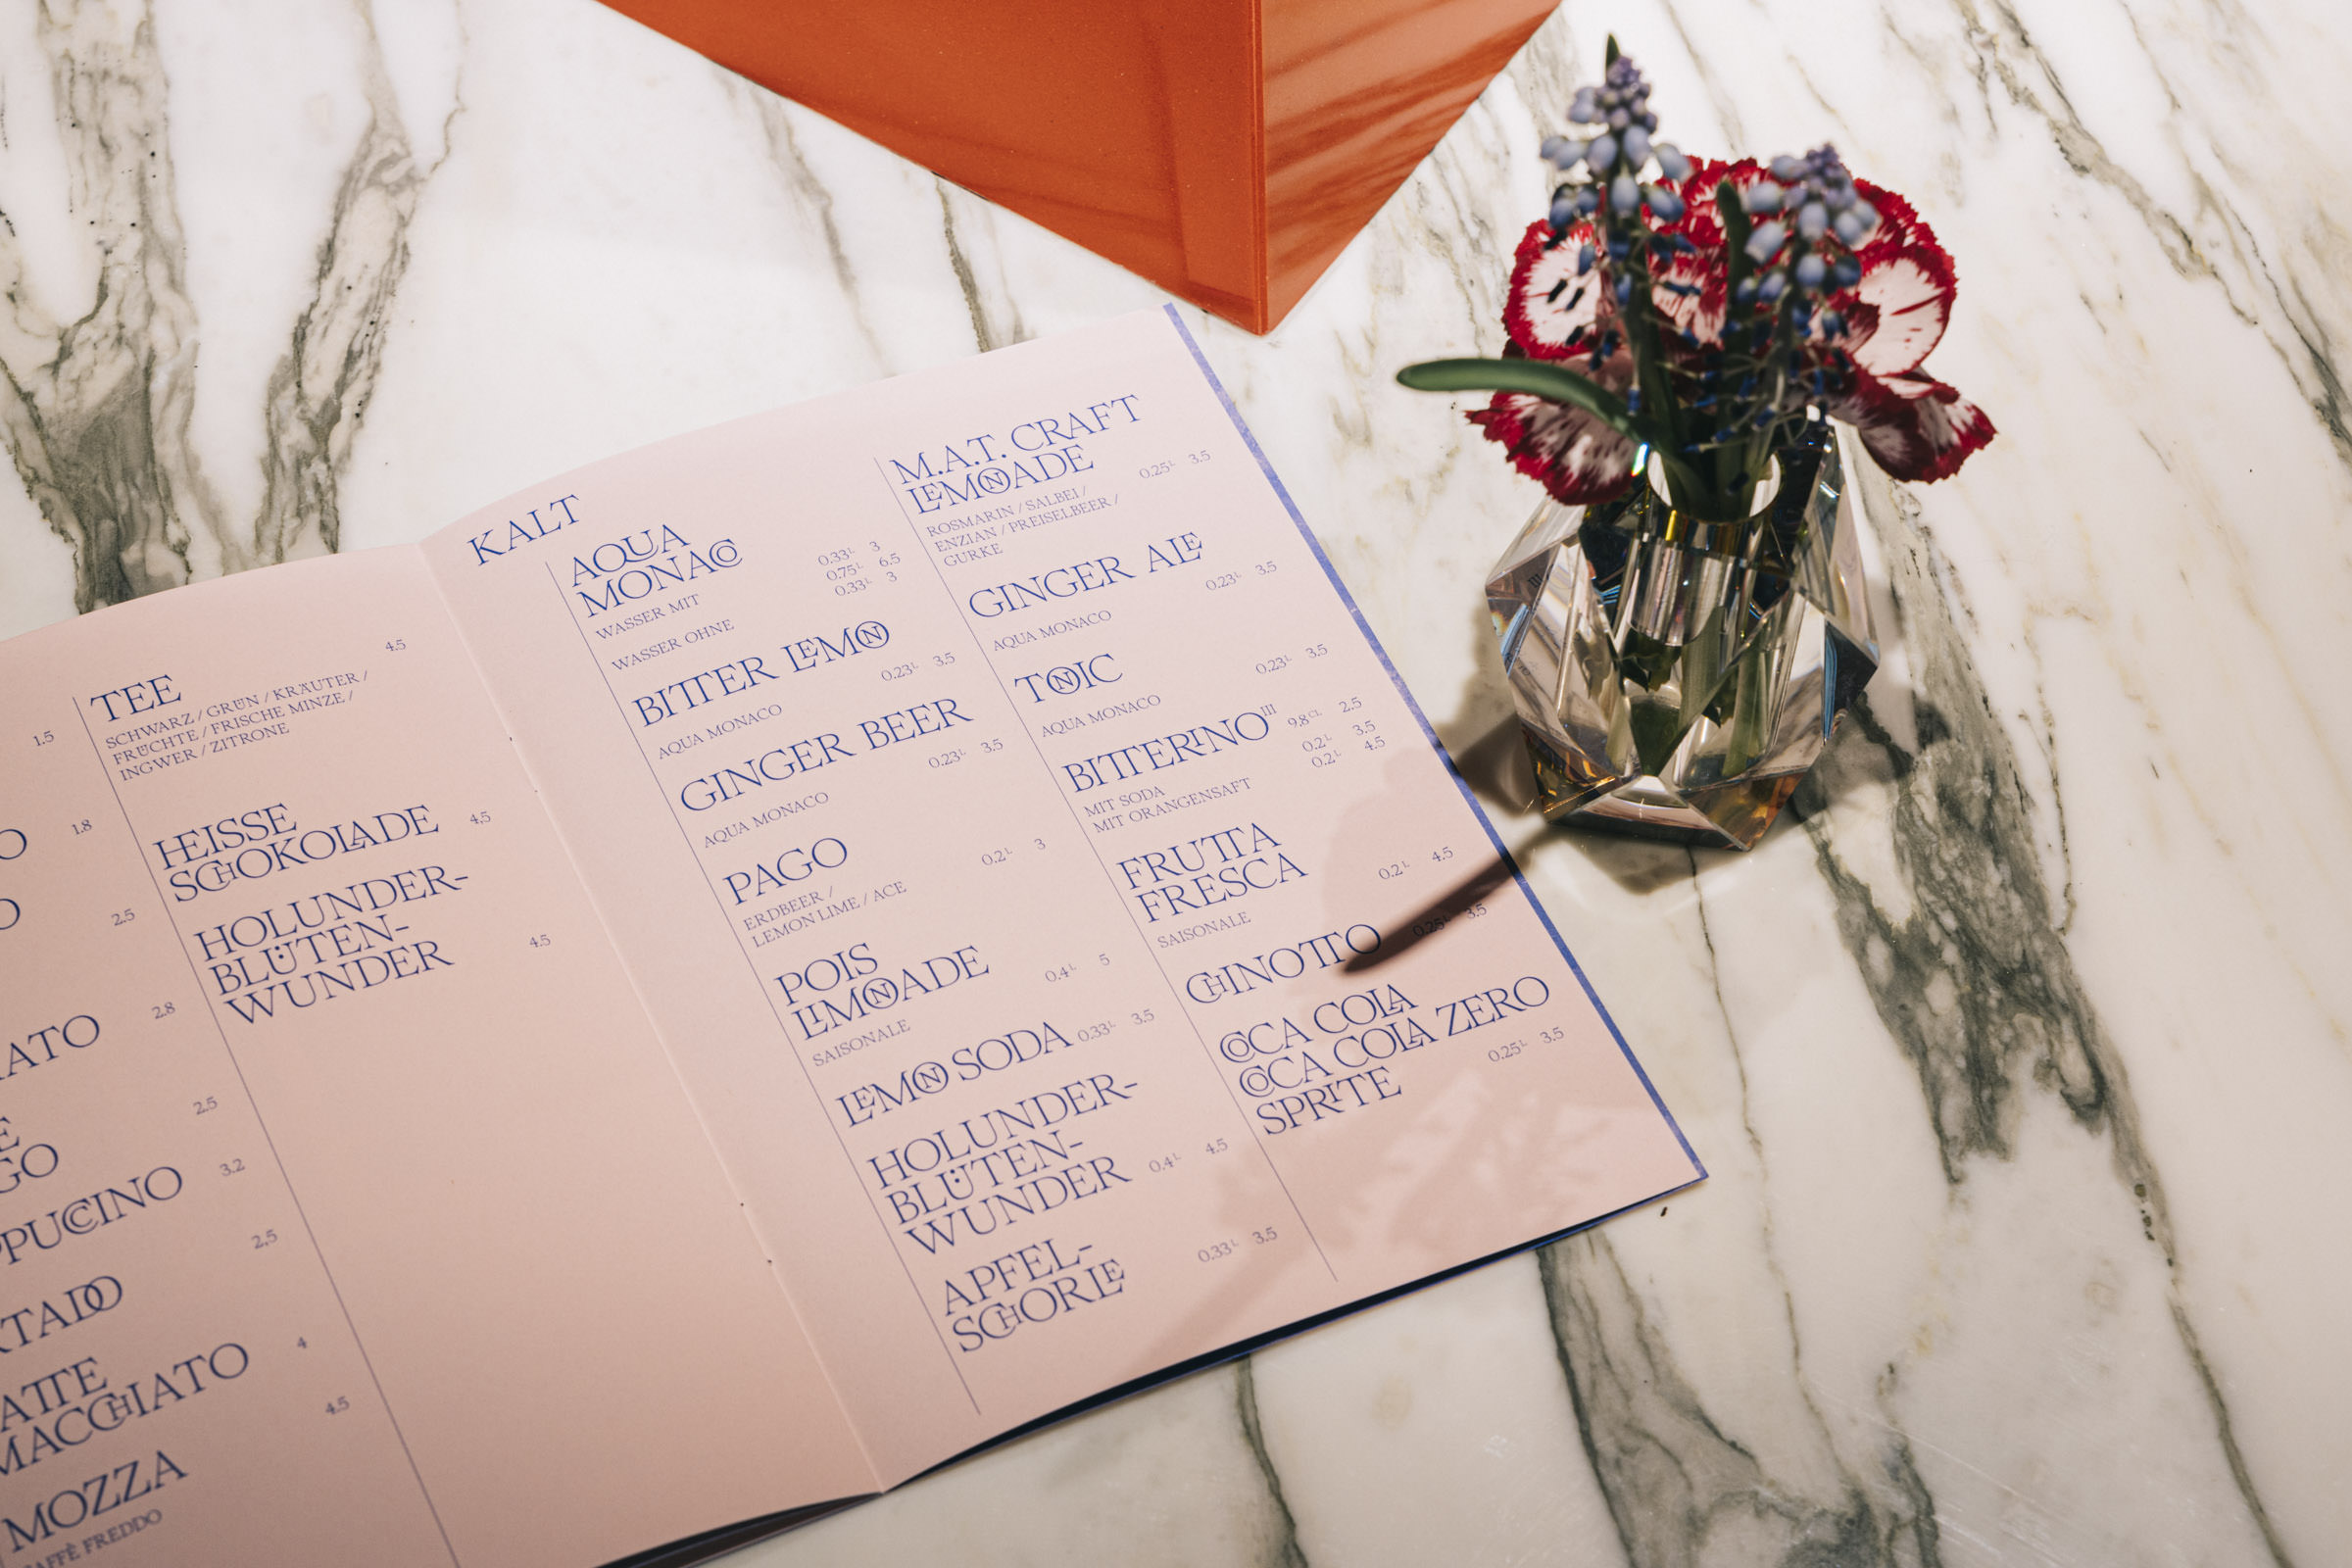 1.5
1.8
2.5
2.8
2.5
GO
3.2
2.5
4
MACCHIATO
4.5
MOZZA
CAFFÈ FREDDO
TEE 4.5
SCHWARZ / GRÜN / KRÄUTER /
FRÜCHTE / FRISCHE MINZE /
INGWER / ZITRONE
HEISSE
SCHOKOLADE 4.5
HOLUNDER-
BLÜTEN-
WUNDER 4.5
KALT
AQUA
MONACO
0.33L 3
0.75L 6.5
0.33L 3
WASSER MIT
WASSER OHNE
BITTER LEMON
0.23L 3.5
AQUA MONACO
GINGER BEER
0.23L 3.5
AQUA MONACO
PAGO 0.2L 3
ERDBEER /
LEMON LIME / ACE
POIS
LIMONADE 0.4L 5
SAISONALE
LEMON SODA 0.33L 3.5
HOLUNDER-
BLÜTEN-
WUNDER 0.4L 4.5
APFEL-
SCHORLE 0.33L 3.5
M.A.T. CRAFT
LEMONADE 0.25L 3.5
ROSMARIN / SALBEI /
ENZIAN / PREISELBEER /
GURKE
GINGER ALE
0.23L 3.5
AQUA MONACO
TONIC 0.23L 3.5
AQUA MONACO
BITTERINO III 9.8CL 2.5
0.2L 3.5
0.2L 4.5
MIT SODA
MIT ORANGENSAFT
FRUTTA
FRESCA 0.2L 4.5
SAISONALE
CHINOTTO 0.25L 3.5
COCA COLA
COCA COLA ZERO
SPRITE 0.25L 3.5